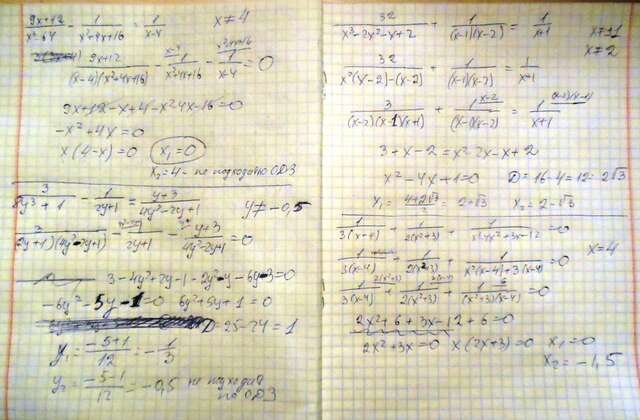 9x+12/x³-64 - 1/x²+4x+16 = 1/x-4 x≠4
9x+12/(x-4)(x²+4x+16) - 1/x²+4x+16 - 1/x-4 = 0
9x+12-x+4-x²-4x-16=0
-x²+4x=0
x(4-x)=0 x₁=0
x₂=4 - не подходит ОДЗ
3/8y³+1 - 1/2y+1 = y+3/4y²-2y+1 y≠-0,5
3/(2y+1)(4y²-2y+1) - 1/2y+1 - y+3/4y²-2y+1 = 0
3-4y²+2y-1-2y²-y-6y-3=0
-6y²-5y-1=0 6y²+5y+1=0
D=25-24=1
y₁=-5+1/12=-1/3
y₂=-5-1/12=-0,5 не подходит по ОДЗ
32/x³-2x²-x+2 + 1/(x-1)(x-2) = 1/x+1 x≠±1
x≠2
32/x²(x-2)-(x-2) + 1/(x-1)(x-2) = 1/x+1
3/(x-2)(x-1)(x+1) + 1/(x-1)(x-2) = 1/x+1
3+x-2=x²-2x-x+2
x²-4x+1=0 D=16-4=12=2√3
x₁=4+2√3/2=2+√3 x₂=2-√3
1/3(x-4) + 1/2(x²+3) + 1/x³-4x²+3x-12 = 0
x=4
1/3(x-4) + 1/2(x²+3) + 1/x²(x-4)+3(x-4) = 0
1/3(x-4) + 1/2(x²+3) + 1/(x²+3)(x-4) = 0
2x²+6+3x-12+6=0
2x²+3x=0 x(2x+3)=0 x₁=0
x₂=-1,5